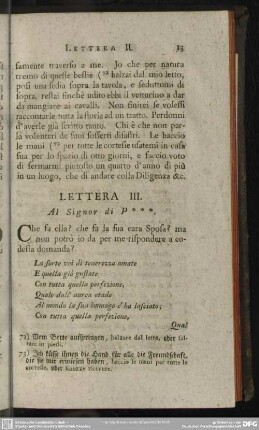 LETTERA II. 33
samente traverso a me. Jo che per natura
tremo di queste bestie (72 balzai dal mio letto,
posi una sedia sopra la tavola, e seduttomi di
sopra, restai finchè udito ebbi il vetturino a dar
da mangiare ai cavalli. Non finirei se volessi
raccontarle tutta la storia ad un tratto. Perdonni
d'averle già scritto tanto. Chi è che non par-
la volentieri de suoi sofferti disastri. Le baccio
le mani (73 per tutte le cortesie usatemi in casa
sua per lo spazio di otto giorni, e faccio voto
di fermarmi piutosto un quarto d'anno di più
in un luogo, che di andare colla Diligenza &c.
LETTERA III.
Al Signor di P***.
Che fa ella? che fa la sua cara Sposa? ma
non potrò io da per me rispondere a co-
desta domanda?
La sorte voi di tenerezza amate
E quella già gustate
Con tutta quella perfezione,
Quale dall' aurea etade
Al mondo la sua immago c'ha lasciato;
Con tutta quella perfezione,
Qual
72) Dem Bette ausspringen, balzare dal letto, oder sal-
tare in piedi.
73) Ich küsse ihnen die Hand für alle die Freundschaft,
die sie mir erwiesen haben, baccio le mani per tutte le
cortesie, oder finezze ricevute.